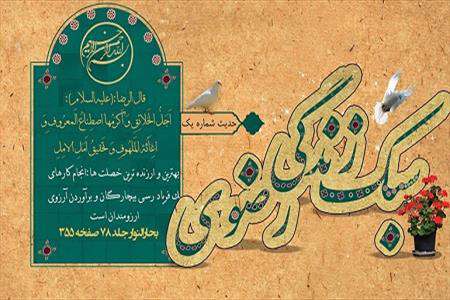 بسم الله الرحمن الرحیم
قال الرضا:(علیه السلام):
اجل الخلائق و اکرمها اصطناع المعروف و
اغاثة الملهوف و تحقیق امل الامل
بهترین و ارزنده ترین خصلت ها :انجام کارهای
فریاد رسی بیچارگان و برآوردن آرزوی
آرزومندان است
بحارالانوار جلد ۷۸ صفحه ۳۵۵
حدیث شماره یک
سبک زندگی
رضوی